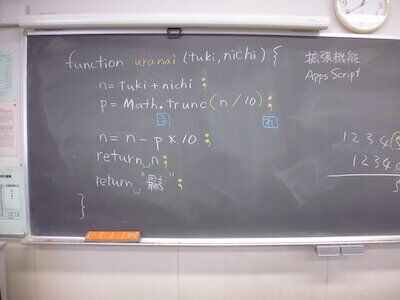 function uranai (tuki, nichi) {
n = tuki + nichi ;
p = Math.trunc (n / 10) ;
n = n - p * 10 ;
return␣n ;
return␣" " ;
}
拡張機能
Apps Script
1234
1234